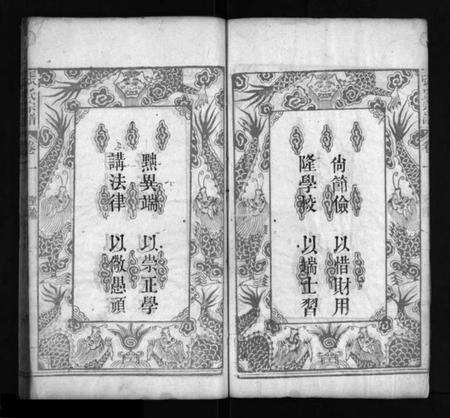 尙節儉 以惜財用
隆學校 以端士習
黜異端 以崇正學
講法律 以儆愚頑